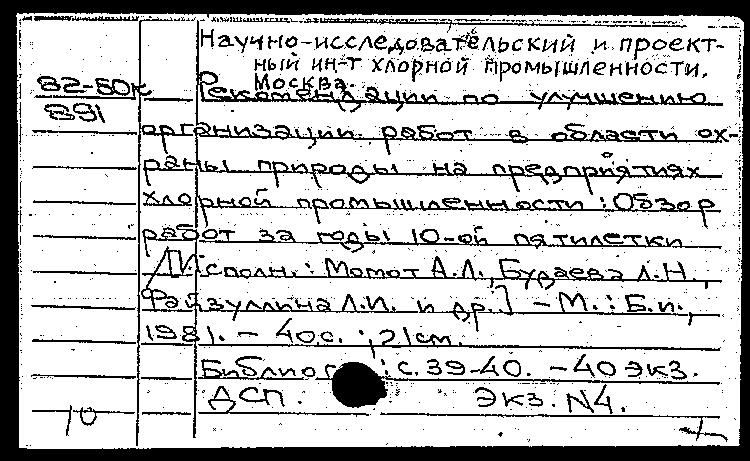 Научно-исследовательский и проект-
ный ин-т хлорной промышленности.
Москва.
82-50к Рекомендации по улучшению
891
организации работ в области ох-
раны природы на предприятиях
хлорной промышленности: Обзор
работ за годы 10-ой пятилетки
/[Исполн.: Мотот А.Л., Будаева Л.Н.,
Файзуллина Л.И. и др.] - М.: Б.и.,
1981. - 40с.; 21см.
Библиог : с. 39-40. - 40 экз.
ДСП. Экз. N4.
10 +